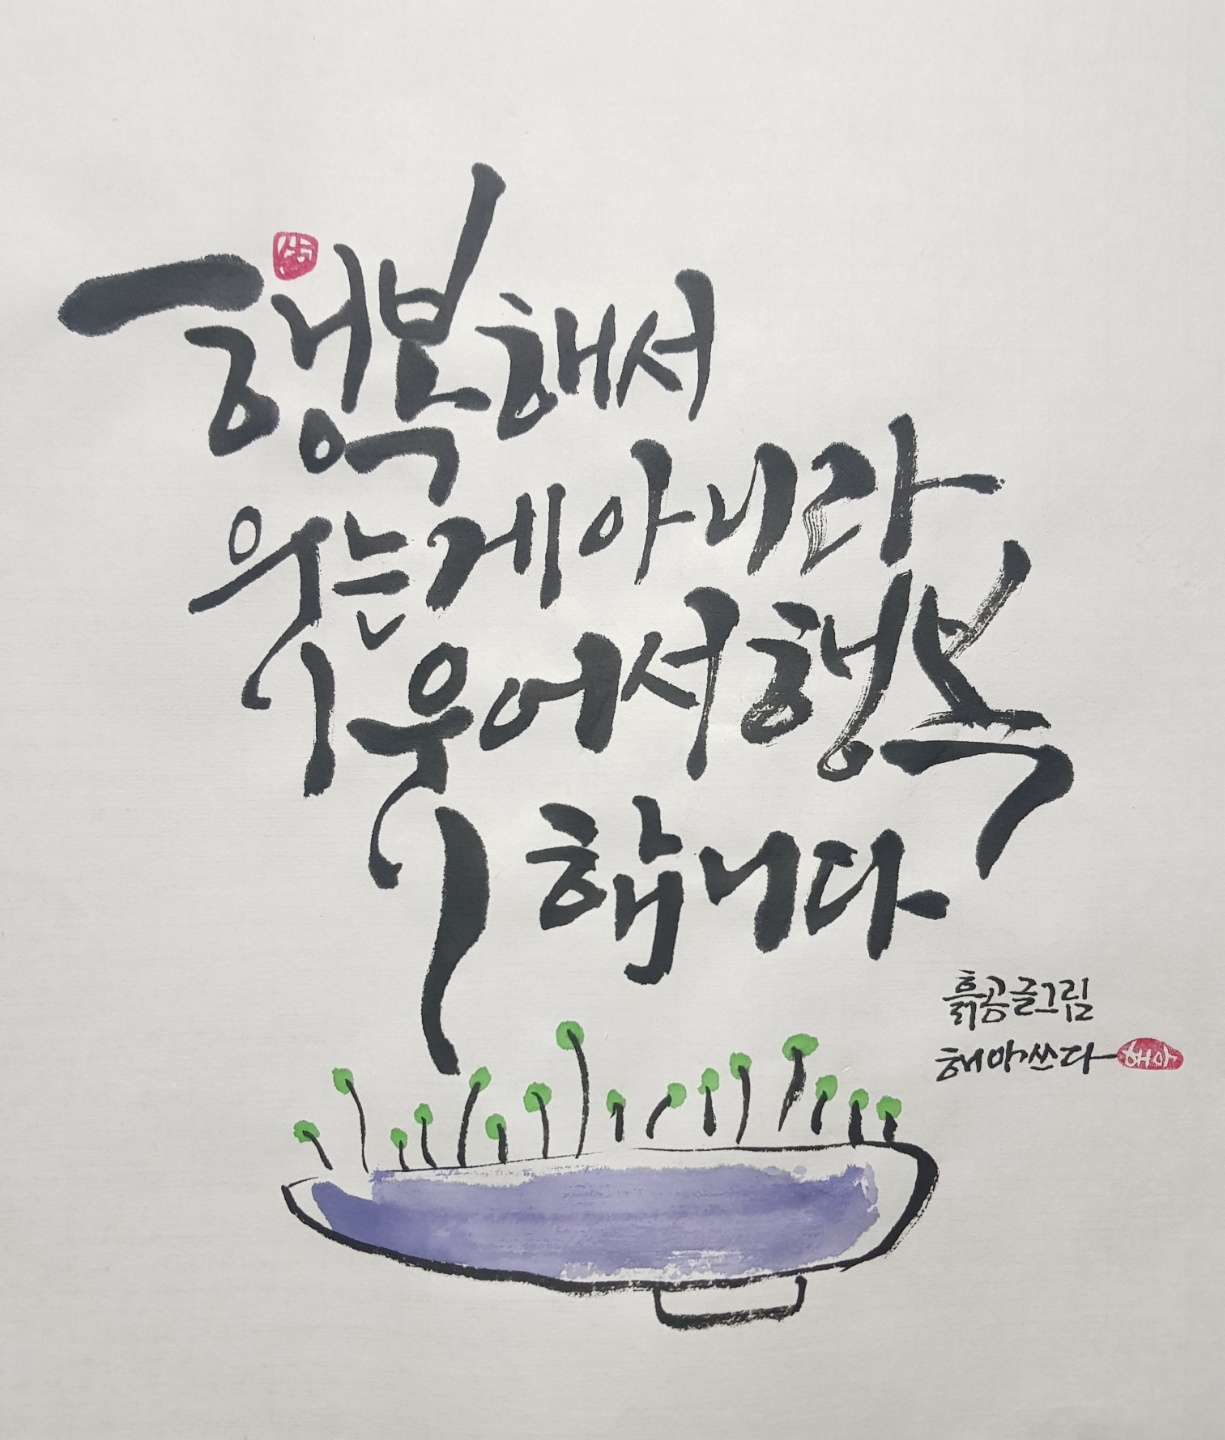 행복해서
웃는게 아니라
웃어서 행복
합니다
흙공글그림
해아쓰다
해아